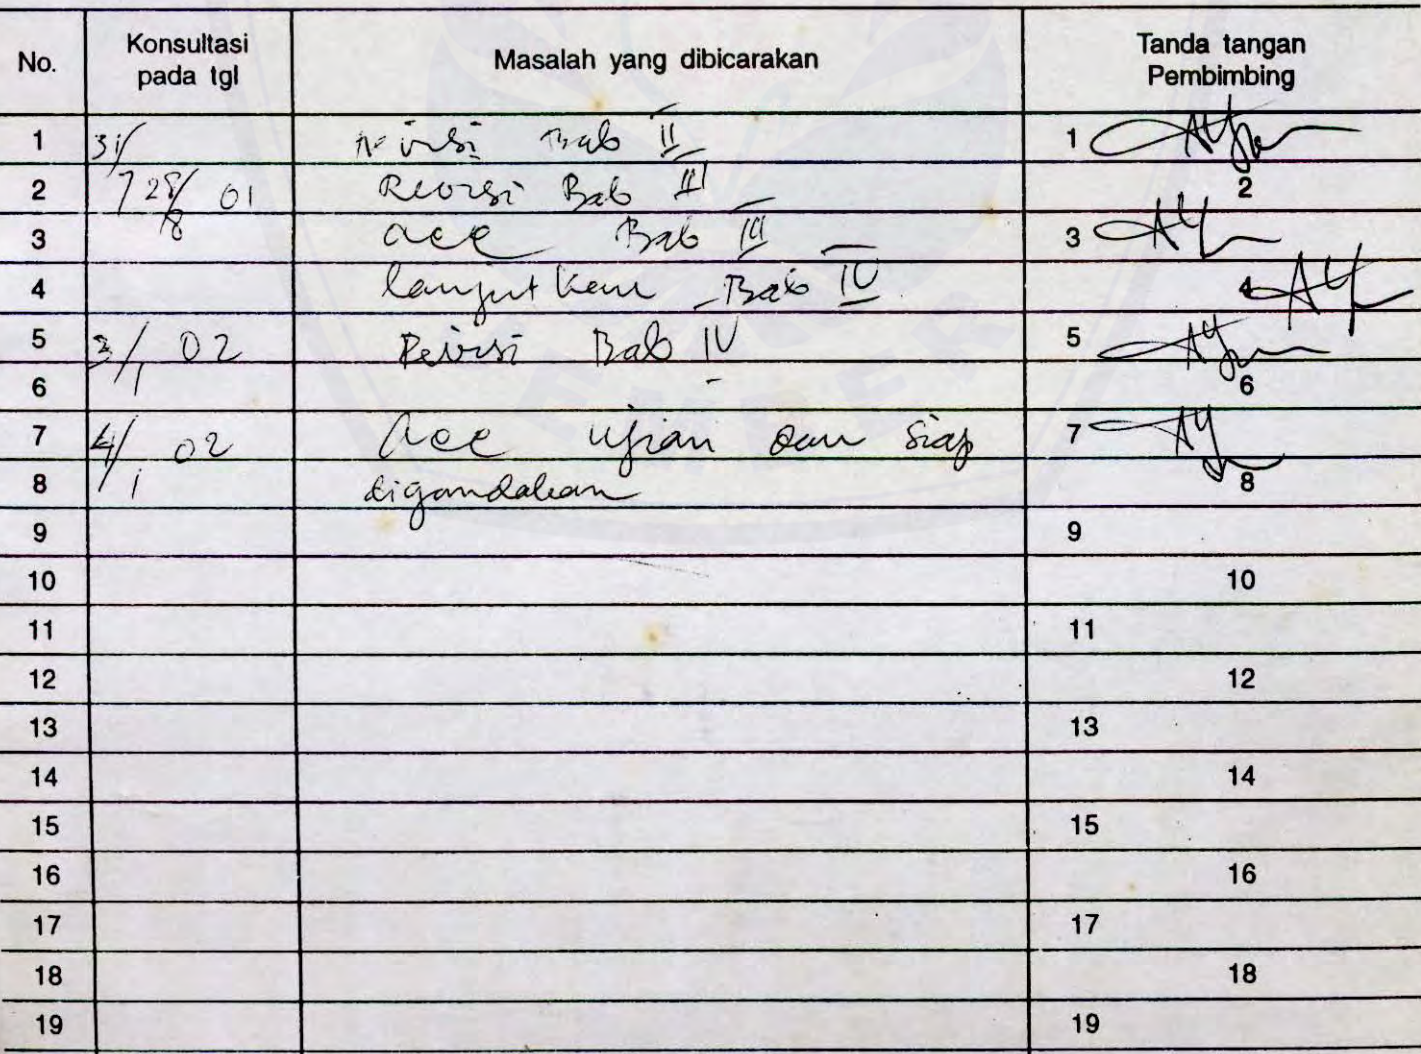 No. Konsultasi pada tgl Masalah yang dibicarakan Tanda tangan Pembimbing
1 31/7 Revisi Bab II 1
2 28/8 01 Revisi Bab III 2
3 acc Bab III 3
4 lanjutkan Bab IV 4
5 3/1 02 Revisi Bab IV 5
6 6
7 4/1 02 Acc ujian dan siap 7
8 digandakan 8
9 9
10 10
11 11
12 12
13 13
14 14
15 15
16 16
17 17
18 18
19 19